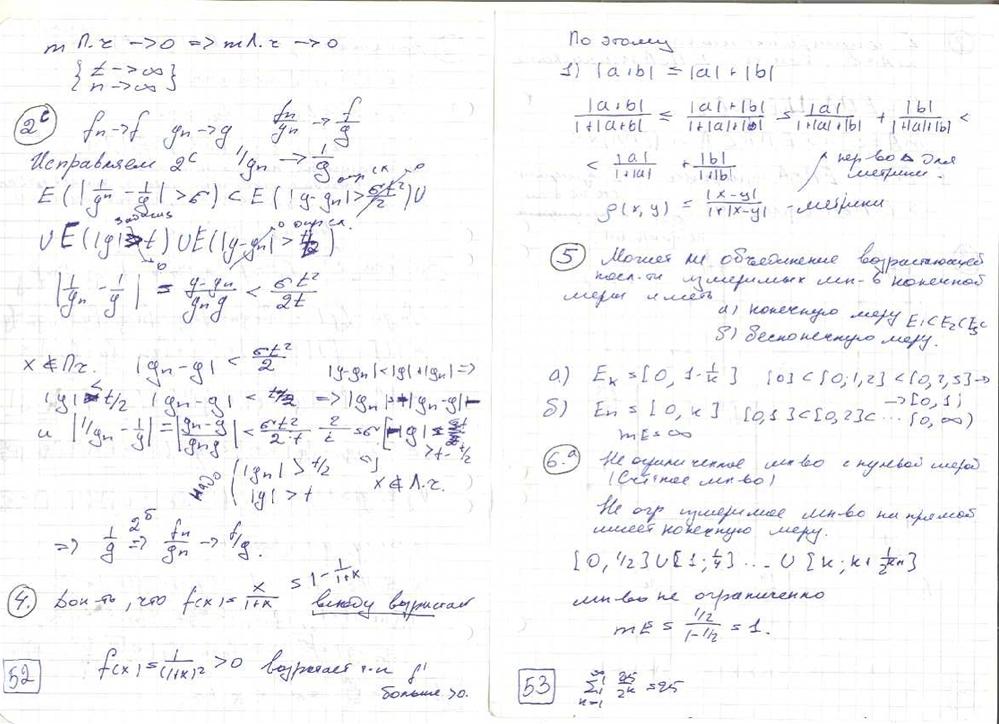 m П.ч → 0 => m Л.ч → 0
{ t → ∞
n → ∞ }
2ᶜ fn → f gn → g fn/gn → f/g
Исправляем 2ᶜ 1/gn → 1/g
E ( | 1/gn - 1/g | > σ ) ⊂ E ( | g-gn | > σt²/2 ) ∪
∪ E ( |g| > t ) ∪ E ( |g-gn| > t/2 )
| 1/gn - 1/g | = g-gn / gng < σt²/2t
x ∉ П.ч. |gn-g| < σt²/2
|g-gn| < |g| + |gn| =>
=> 1/g 2б => fn/gn → f/g.
надо ( |gn| > t/2
|g| > t
x ∉ Л.ч.
4. Док-ть, что f(x) = x/1+x = 1 - 1/1+x всюду возрастает
f'(x) = 1/(1+x)² > 0 возрастает т.к f'
больше > 0.
52
По этому
1) |a+b| ≤ |a| + |b|
|a+b| / 1+|a+b| ≤ |a|+|b| / 1+|a|+|b| ≤ |a| / 1+|a|+|b| + |b| / 1+|a|+|b| <
< |a| / 1+|a| + |b| / 1+|b| нер-во Δ для
метрики.
ρ(x, y) = |x-y| / 1+|x-y| - метрики
5 Может ли объединение возрастающей
посл-ти измеримых мн-в конечной
меры иметь
а) конечную меру E1⊂E2⊂E3⊂
б) бесконечную меру.
а) Ek = [0, 1-1/k] [0] ⊂ [0, 1/2] ⊂ [0, 2/3] →
→ [0, 1)
б) En = [0, k] [0,1] ⊂ [0,2] ⊂ ... [0, ∞)
mE = ∞
6.а Не ограниченное мн-во с нулевой мерой
(Счётное мн-во)
Не огр измеримое мн-во на прямой
имеет конечную меру.
[0, 1/2] ∪ [1; 1/4] ... ∪ [k; k+
мн-во не ограниченно
mE = 1/2 / 1-1/2 = 1.
53